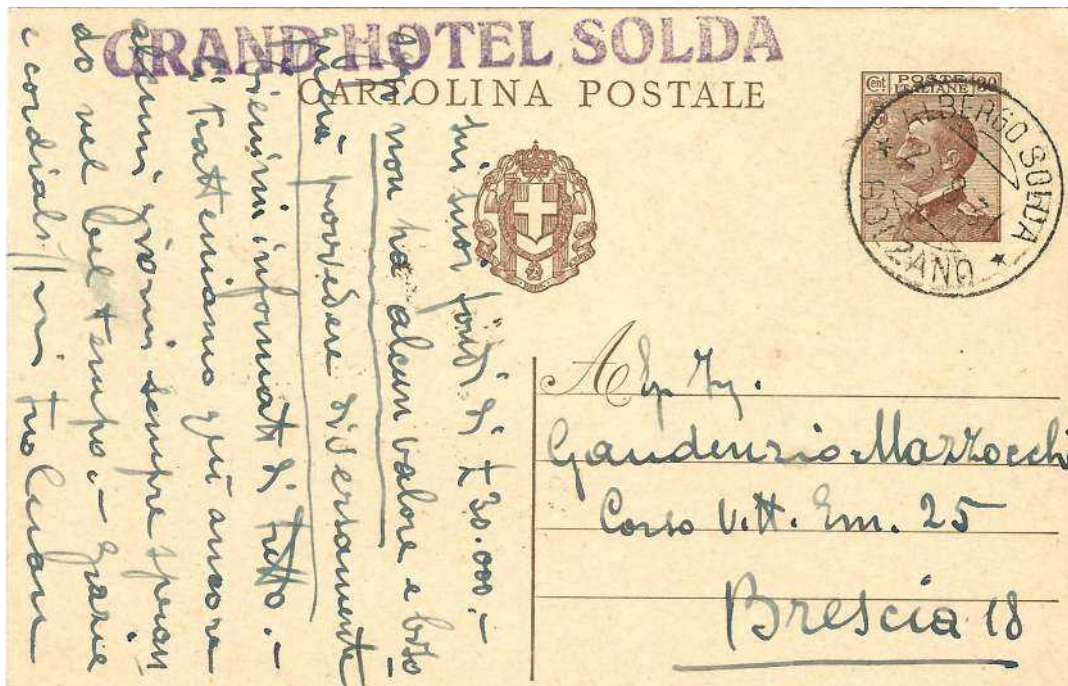 GRAND HOTEL SOLDA
CARTOLINA POSTALE
Cent 30
POSTE
ITALIANE
ALBERGO SOLDA
* BOLZANO *
sui tuoi fondi di £ 30.000.-
non ha alcun valore e biso
gnerà provvedere diversamente
Tienimi informato di tutto.-
Ci tratteniamo qui ancora
alcuni giorni sempre speran
do nel bel tempo.- Grazie
e cordialissimi tuo
A Eg. Ing.
Gaudenzio Mazzocchi
Corso Vitt. Em. 25
Brescia 18